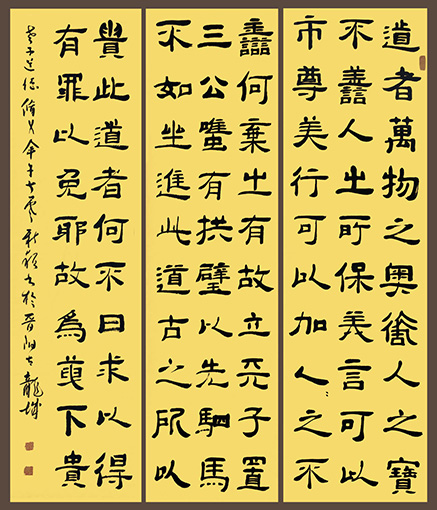 道者萬物之奧善人之寶
不譱人之所保美言可以
市尊美行可以加人之不
譱何棄之有故立天子置
三公雖有拱璧以先駟馬
不如坐進此道古之所以
貴此道者何不曰求以得
有罪以免耶故為天下貴
老子道德 甲午 書於晉陽古龍城